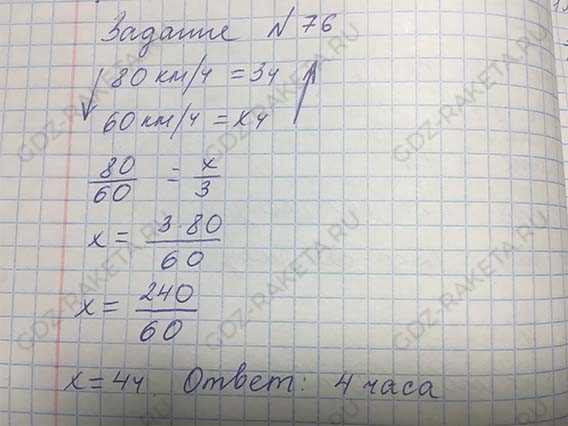 Задание № 76
80 км/ч = 3ч
60 км/ч = xч
80/60 = x/3
x = 3·80/60
x = 240/60
x = 4ч. Ответ: 4 часа
GDZ-RAKETA.RU